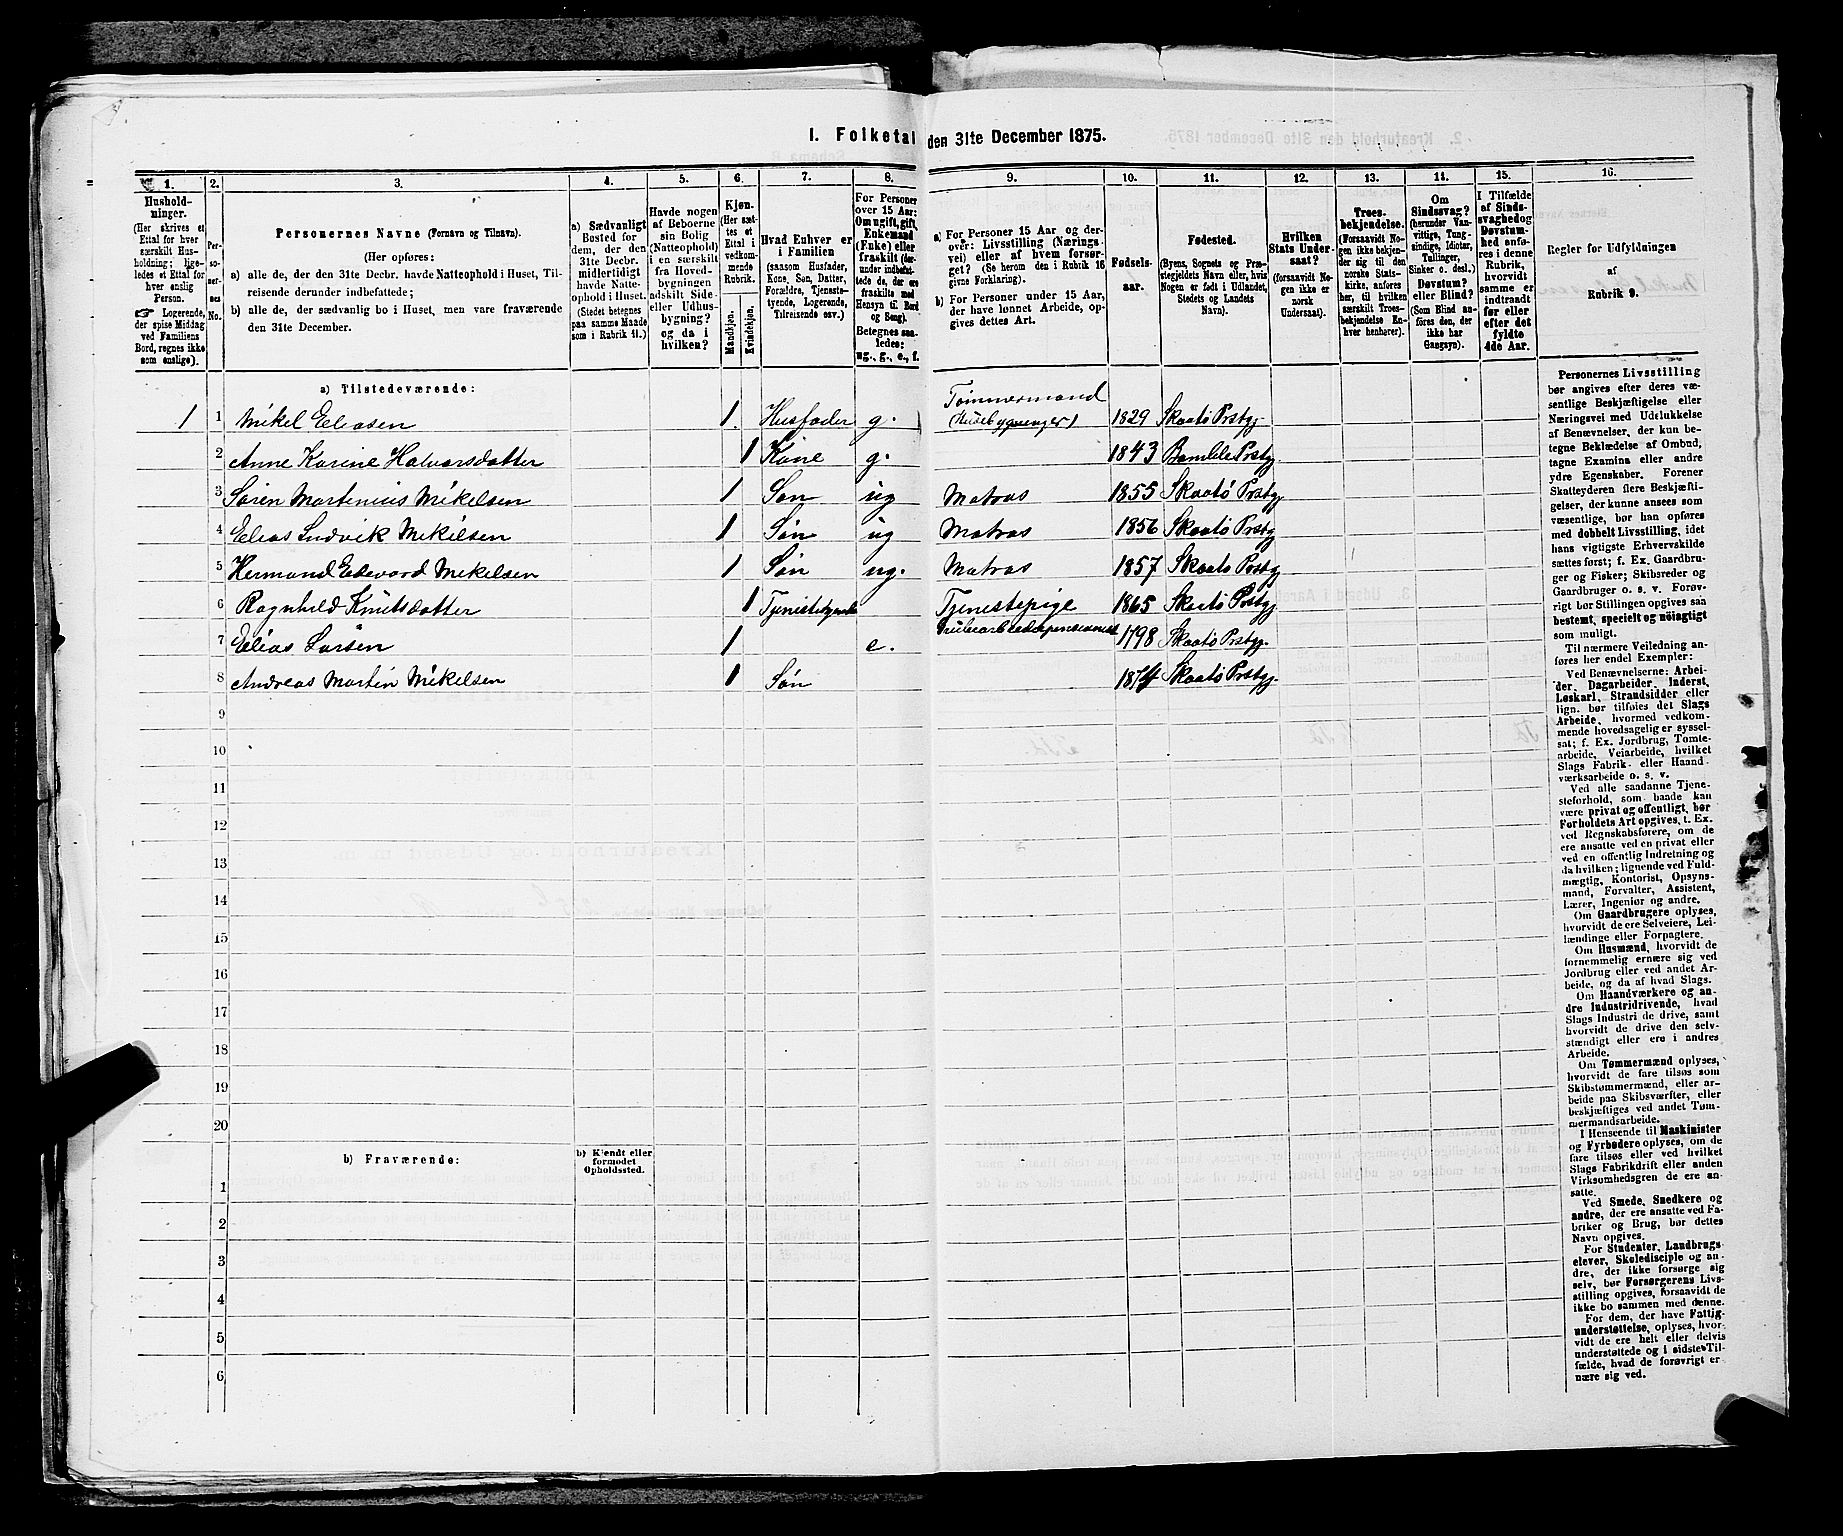 1. Folketal den 31te December 1875.
1. 2. 3. 4. 5. 6. 7. 8. 9. 10. 11. 12. 13. 14. 15. 16.
Hushold-
ninger.
(Her skrives et
Ettal for hver
særskilt Hus-
holdning; lige-
ledes et Ettal for
hver enslig
Person.
Logerende,
der spise Middag
ved Familiens
Bord, regnes ikke
som enslige).
Per-
so-
ner-
nes
No.
Personernes Navne (Fornavn og Tilnavn).
(Her opføres:
a) alle de, der den 31te Decbr. havde Natteophold i Huset, Til-
reisende derunder indbefattede;
b) alle de, der sædvanlig bo i Huset, men vare fraværende
den 31te December.
a) Sædvanligt
Bosted for
dem, der den
31te Decbr.
midlertidigt
havde Natte-
ophold i Huset.
(Stedet betegnes
paa samme Maade
som i Rubrik 11.)
Havde nogen
af Beboerne
sin Bolig
(Natteophold)
i en særskilt
fra Hoved-
bygningen
adskilt Side-
eller Udhus-
bygning?
og da i
hvilken?
Kjøn.
(Her sæt-
tes et
Ettal i
vedkom-
mende
Rubrik.
Mandkjøn.
Kvindekjøn.
Hvad Enhver er
i Familien
(saasom Husfader,
Kone, Søn, Datter,
Forældre, Tjeneste-
tyende, Logerende,
Tilreisende osv.)
For Personer
over 15 Aar:
Om ugift, gift,
Enkemand
(Enke) eller
fraskilt (der-
under indbefat-
tede de, der ere
fraskilte med
Hensyn til Bord
og Seng).
Betegnes saa-
ledes:
ug., g., e., f.
a) For Personer 15 Aar og der-
over: Livsstilling (Nærings-
vei) eller af hvem forsør-
get? (Se herom den i Rubrik 16
givne Forklaring.)
b) For Personer under 15 Aar,
der have lønnet Arbeide, op-
gives dettes Art.
Fødsels-
aar.
Fødested.
(Byens, Sognets og Præ-
stegjeldets Navn eller, hvis
Nogen er født i Udlandet,
Stedets og Landets
Navn).
Hvilken
Stats Under-
saat?
(forsaavidt No-
gen ikke er
norsk
Undersaat).
Troes-
bekjendelse.
(Forsaavidt No-
gen ikke bekjen-
der sig til den
norske Stats-
kirke, anføres
her, til hvilken
særskilt Troes-
bekjendelse En-
hver henhører).
Om
Sindssvag?
(herunder Van-
vittige, Tung-
sindige, Idioter,
Tullinger,
Sinker o. desl.)
Døvstum?
eller Blind?
(Som Blind an-
føres den, der
ikke har
Gangsyn).
I Tilfælde
af Sinds-
svaghed og
Døvstum-
hed anfø-
res i denne
Rubrik,
hvorvidt
samme er
indtraadt
før eller
efter det
fyldte
4de Aar.
Regler for Udfyldningen
af
Rubrik 9.
a) Tilstedeværende:
1 1 Mikel Eliasen 1. Husfader g. Tømmermand (Husebygninger) 1829 Skaatø Prstgj.
2 Anne Karine Halvorsdatter 1 Kone g. 1843 Bamble Prstgj
3 Søren Martenius Mikelsen 1 Søn ug Matros 1855 Skaatø Prstgj
4 Elias Ludvik Mikelsen 1 Søn ug Matros 1856 Skaatø Prstgj
5 Hermand Edevard Mikelsen 1 Søn ug. Matros 1857 Skaatø Prstgj
6 Ragnhild Knutsdatter 1 Tjenestetyende Tjenestepige 1865 Skaatø Prstgj
7 Elias Larsen 1 e. 1798 Skaatø Prstgj.
8 Andreas Martin Mikelsen 1 Søn 1874 Skaatø Prstgj.
9
10
11
12
13
14
15
16
17
18
19
20
b) Fraværende:
b) Kjendt eller
formodet
Opholdssted.
1
2
3
4
5
6
Personernes Livsstilling
bør angives efter deres væ-
sentlige Beskjæftigelse eller
Næringsvei med Udelukkelse
af Benævnelser, der kun be-
tegne Beklædelse af Ombud,
tagne Examina eller andre
ydre Egenskaber. Forener
Skatteyderen flere Beskjæfti-
gelser, der kunne ansees som
væsentlige, bør han opføres
med dobbelt Livsstilling, idet
hans vigtigste Erhvervskilde
sættes først; f. Ex. Gaardbru-
ger og Fisker; Skibsreder og
Gaardbruger o. s. v. Forøv-
rigt bør Stillingen opgives saa
bestemt, specielt og nøiagtigt
som muligt.
Til nærmere Veiledning an-
føres her endel Exempler:
Ved Benævnelserne: Arbei-
der, Dagarbeider, Inderst,
Løskarl, Strandsidder eller
lign. bør tilføies det Slags
Arbeide, hvormed vedkom-
mende hovedsagelig er syssel-
sat; f. Ex. Jordbrug, Tømte-
arbeide, Veiarbeide, hvilket
Slags Fabrik- eller Haand-
værksarbeide o. s. v.
Ved alle saadanne Tjene-
steforhold, som baade kan
være privat og offentligt, bør
Forholdets Art opgives, t. Ex.
ved Regnskabsførere, om de
ere ansatte ved en privat eller
ved en offentlig Indretning og
da hvilken; lignende ved Fuld-
mægtig, Kontorist, Opsyns-
mand, Forvalter, Assistent,
Lærer, Ingeniør og andre.
Om Gaardbrugere oplyses,
hvorvidt de ere Selveiere, Lei-
lændinge eller Forpagtere.
Om Husmænd, hvorvidt de
fornemmelig ernære sig ved
Jordbrug eller ved andet Ar-
beide, og da af hvad Slags.
Om Haandværkere og an-
dre Industridrivende, hvad
Slags Industri de drive, samt
hvorvidt de drive den selv-
stændigt eller ere i andres
Arbeide.
Om Tømmermænd oplyses,
hvorvidt de fare tilsøs som
Skibstømmermænd, eller ar-
beide paa Skibsværfter, eller
beskjæftiges ved andet Tøm-
mermandsarbeide.
I Henseende til Maskinister
og Fyrbødere oplyses, om de
fare tilsøs eller ved hvilket
Slags Fabrikdrift eller anden
Virksomhedsgren de ere an-
satte.
Ved Smede, Snedkere og
andre, der ere ansatte ved Fa-
briker og Brug, bør dettes
Navn opgives.
For Studenter, Landbrugs-
elever, Skoledisciple og an-
dre, der ikke forsørge sig
selv, bør Forsørgerens Livs-
stilling opgives, forsaavidt de
ikke bo sammen med denne.
For dem, der have Fattig-
understøttelse, oplyses, hvor-
vidt de ere helt eller delvis
understøttede og i sidste Til-
fælde, hvad de forøvrigt er-
nære sig ved.